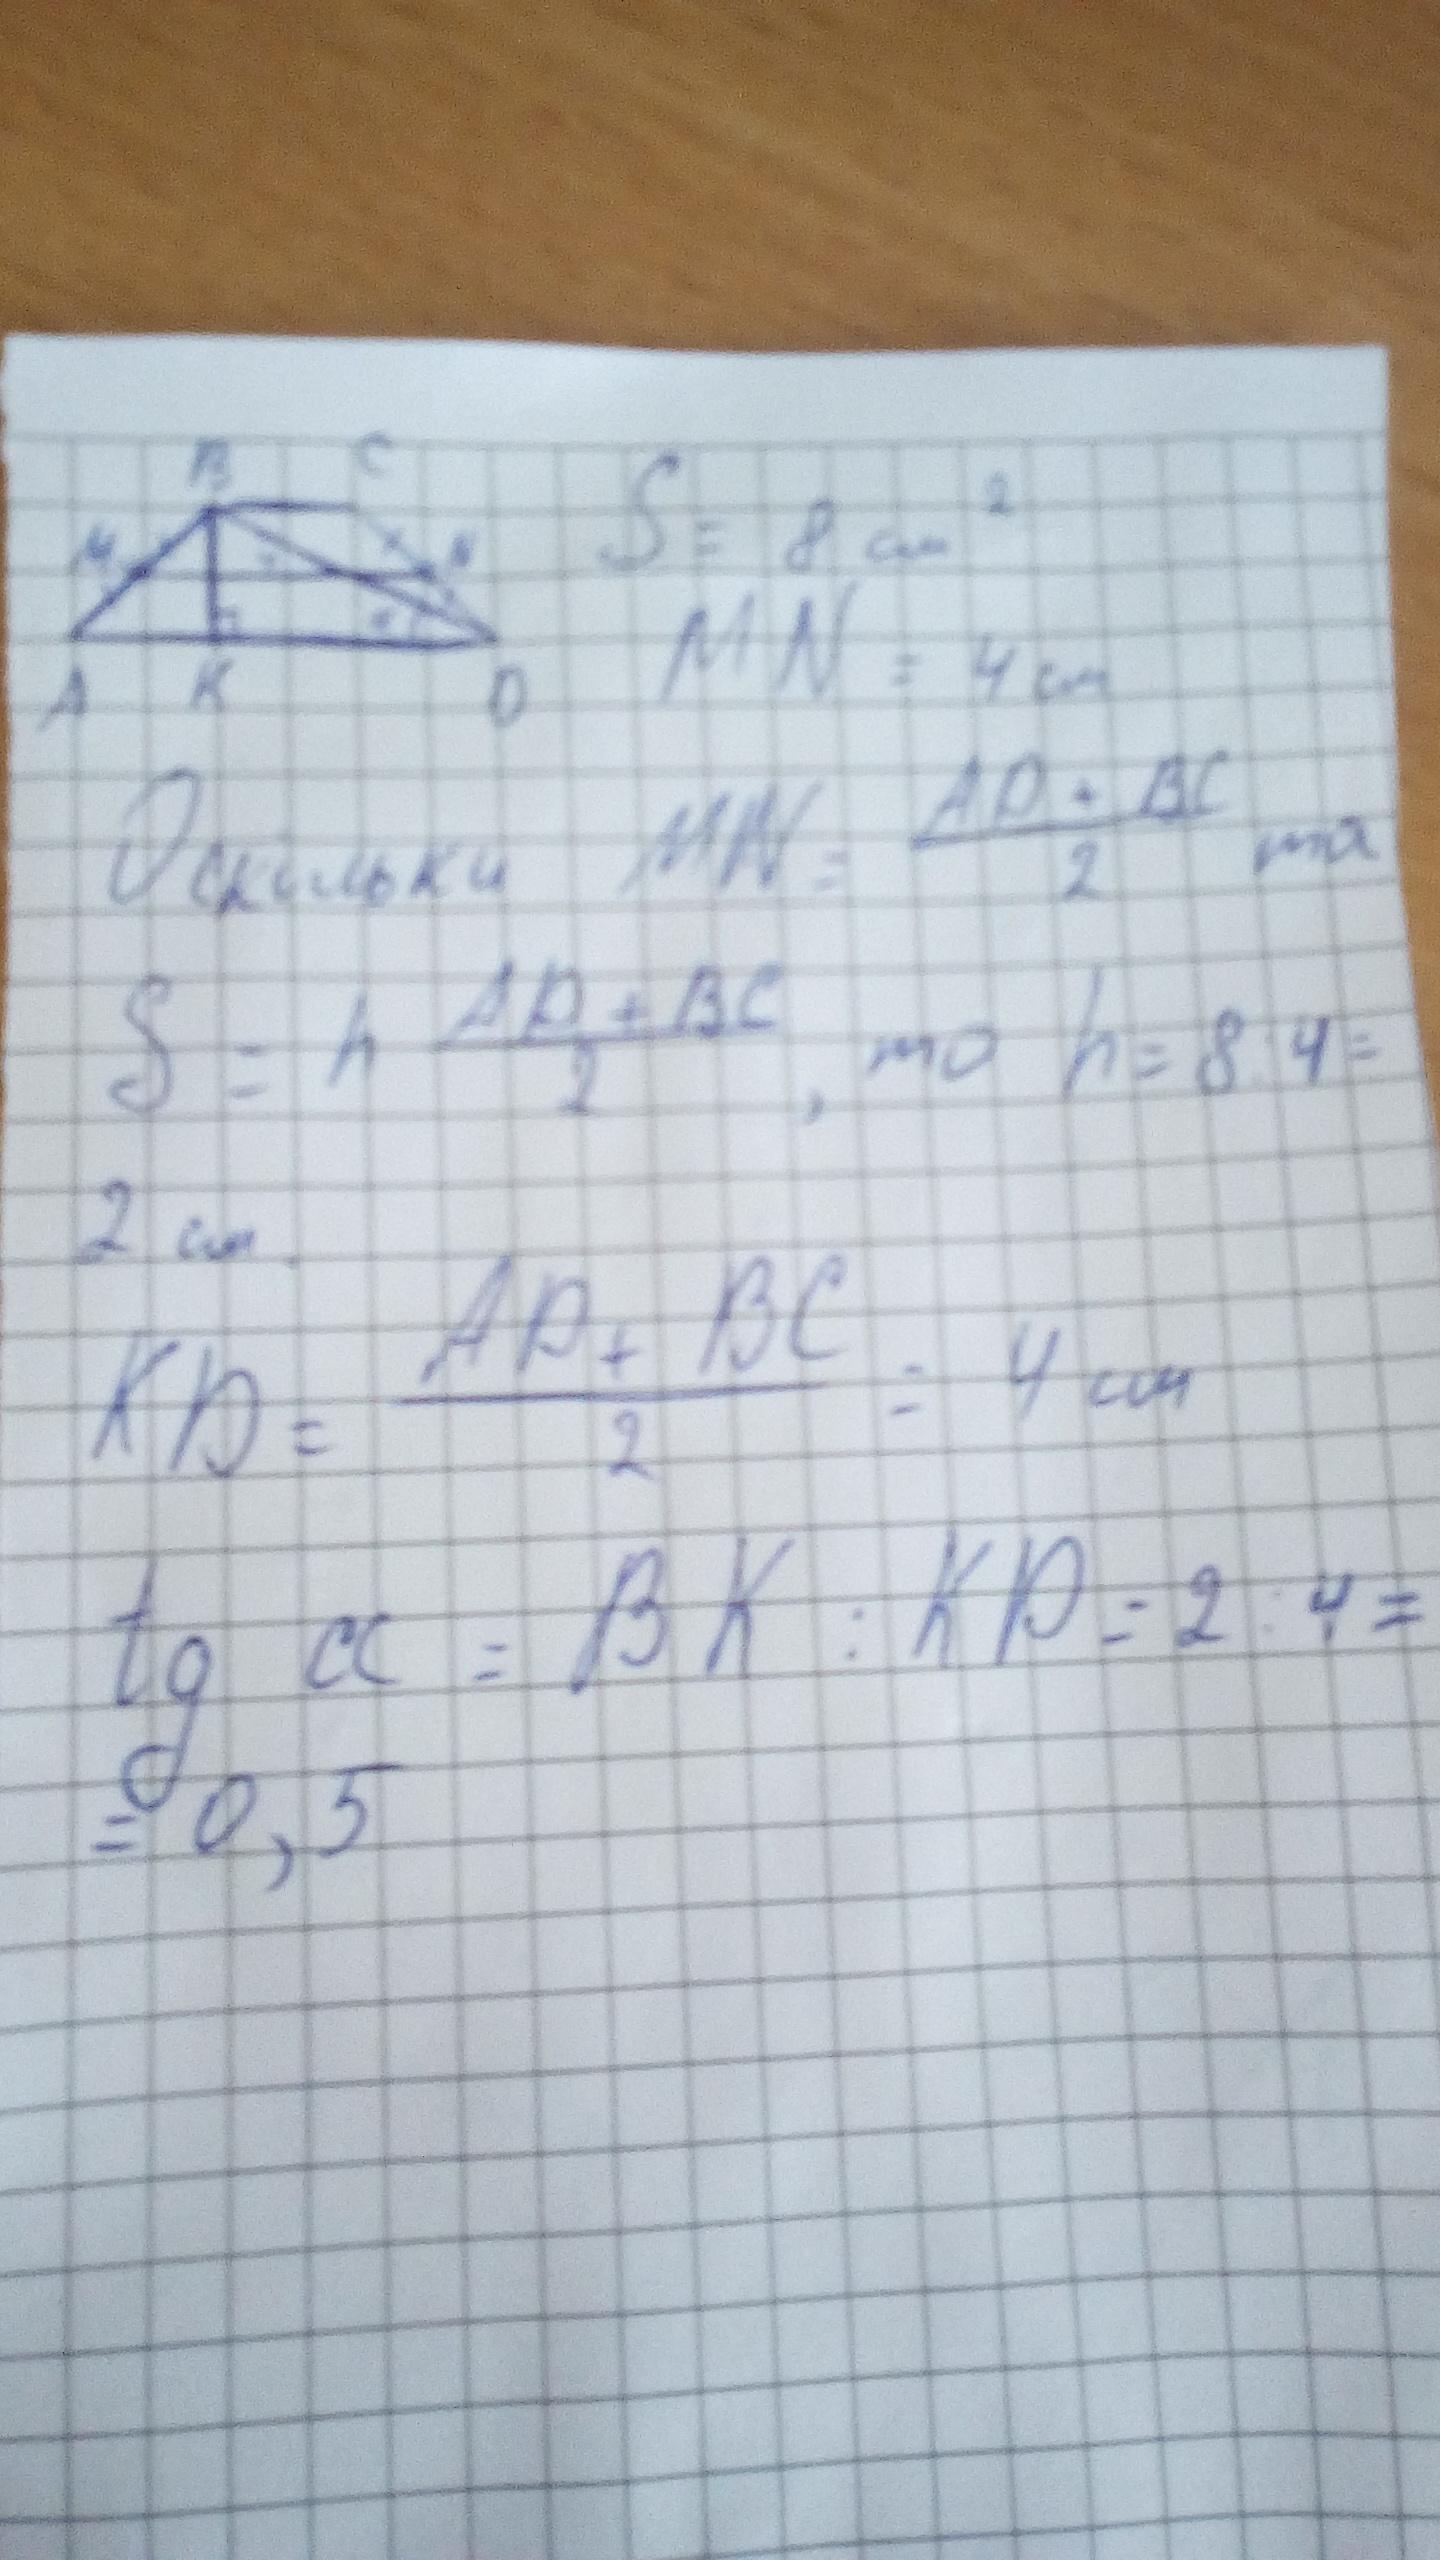 B C
M N
A K D
S = 8 см²
MN = 4 см
Оскільки MN = (AD + BC)/2 та
S = h (AD + BC)/2, то h = 8 : 4 =
2 см.
KD = (AD + BC)/2 = 4 см
tg α = BK : KD = 2 : 4 =
= 0,5